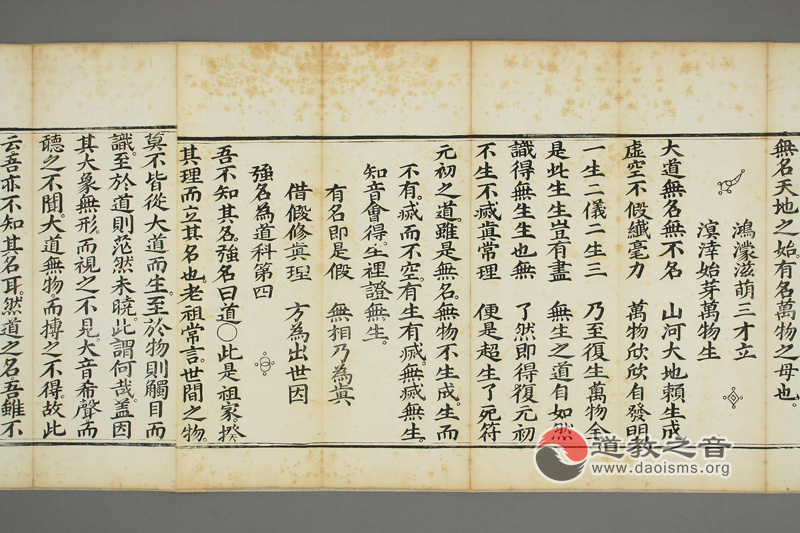 無名天地之始。有名萬物之母也。
鴻濛滋萌三才立
溟涬始芽萬物生
大道無名無不名　山河大地賴生成
虛空不假纖毫力　萬物欣欣自發明
一生二儀二生三　乃至復生萬物全
是此生生豈有盡　無生之道自如然
識得無生生也無　了然即得復元初
不生不滅眞常理　便是超生了死符
元初之道。雖是無名。無物不生成。生而
不有。滅而不空。有生有滅。無滅無生。
知音會得。生裡證無生。
有名即是假　無相乃為眞
借假修眞理　方為出世因
強名為道科第四
吾不知其名。強名曰道〇此是祖家揆
其理而立其名也。老祖常言。世間之物。
莫不皆從大道而生。至於物則觸目而
識。至於道則茫然未曉。此謂何哉。蓋因
其大象無形。而視之不見。大音希聲而
聽之不聞。大道無物。而搏之不得。故此
云。吾亦不知其名耳。然道之名。吾雖不
道教之音
www.daoisms.org